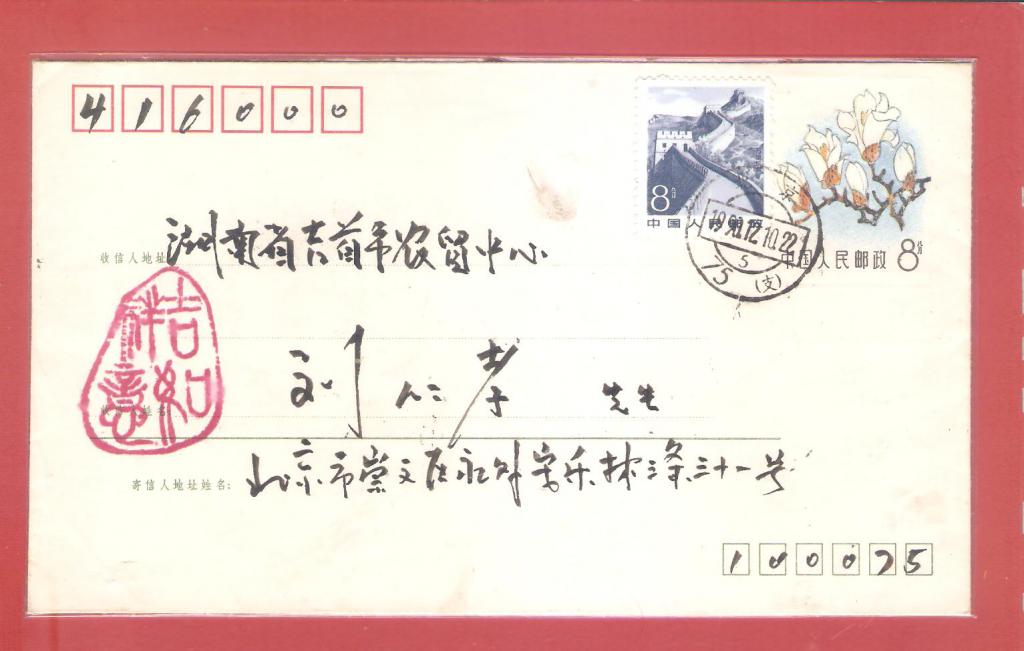 416000
8分
中国人民邮政
1990.12.10.22
5
75
(支)
中国人民邮政 8分
收信人地址: 湖南省吉首市农贸中心
吉祥如意
刘仁孝 先生
收信人姓名:
寄信人地址姓名: 北京市崇文区永外 三十一号
100075